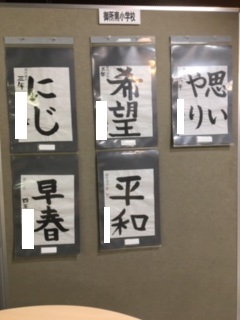 御所南小学校
にじ
希望
思い
やり
早春
平和